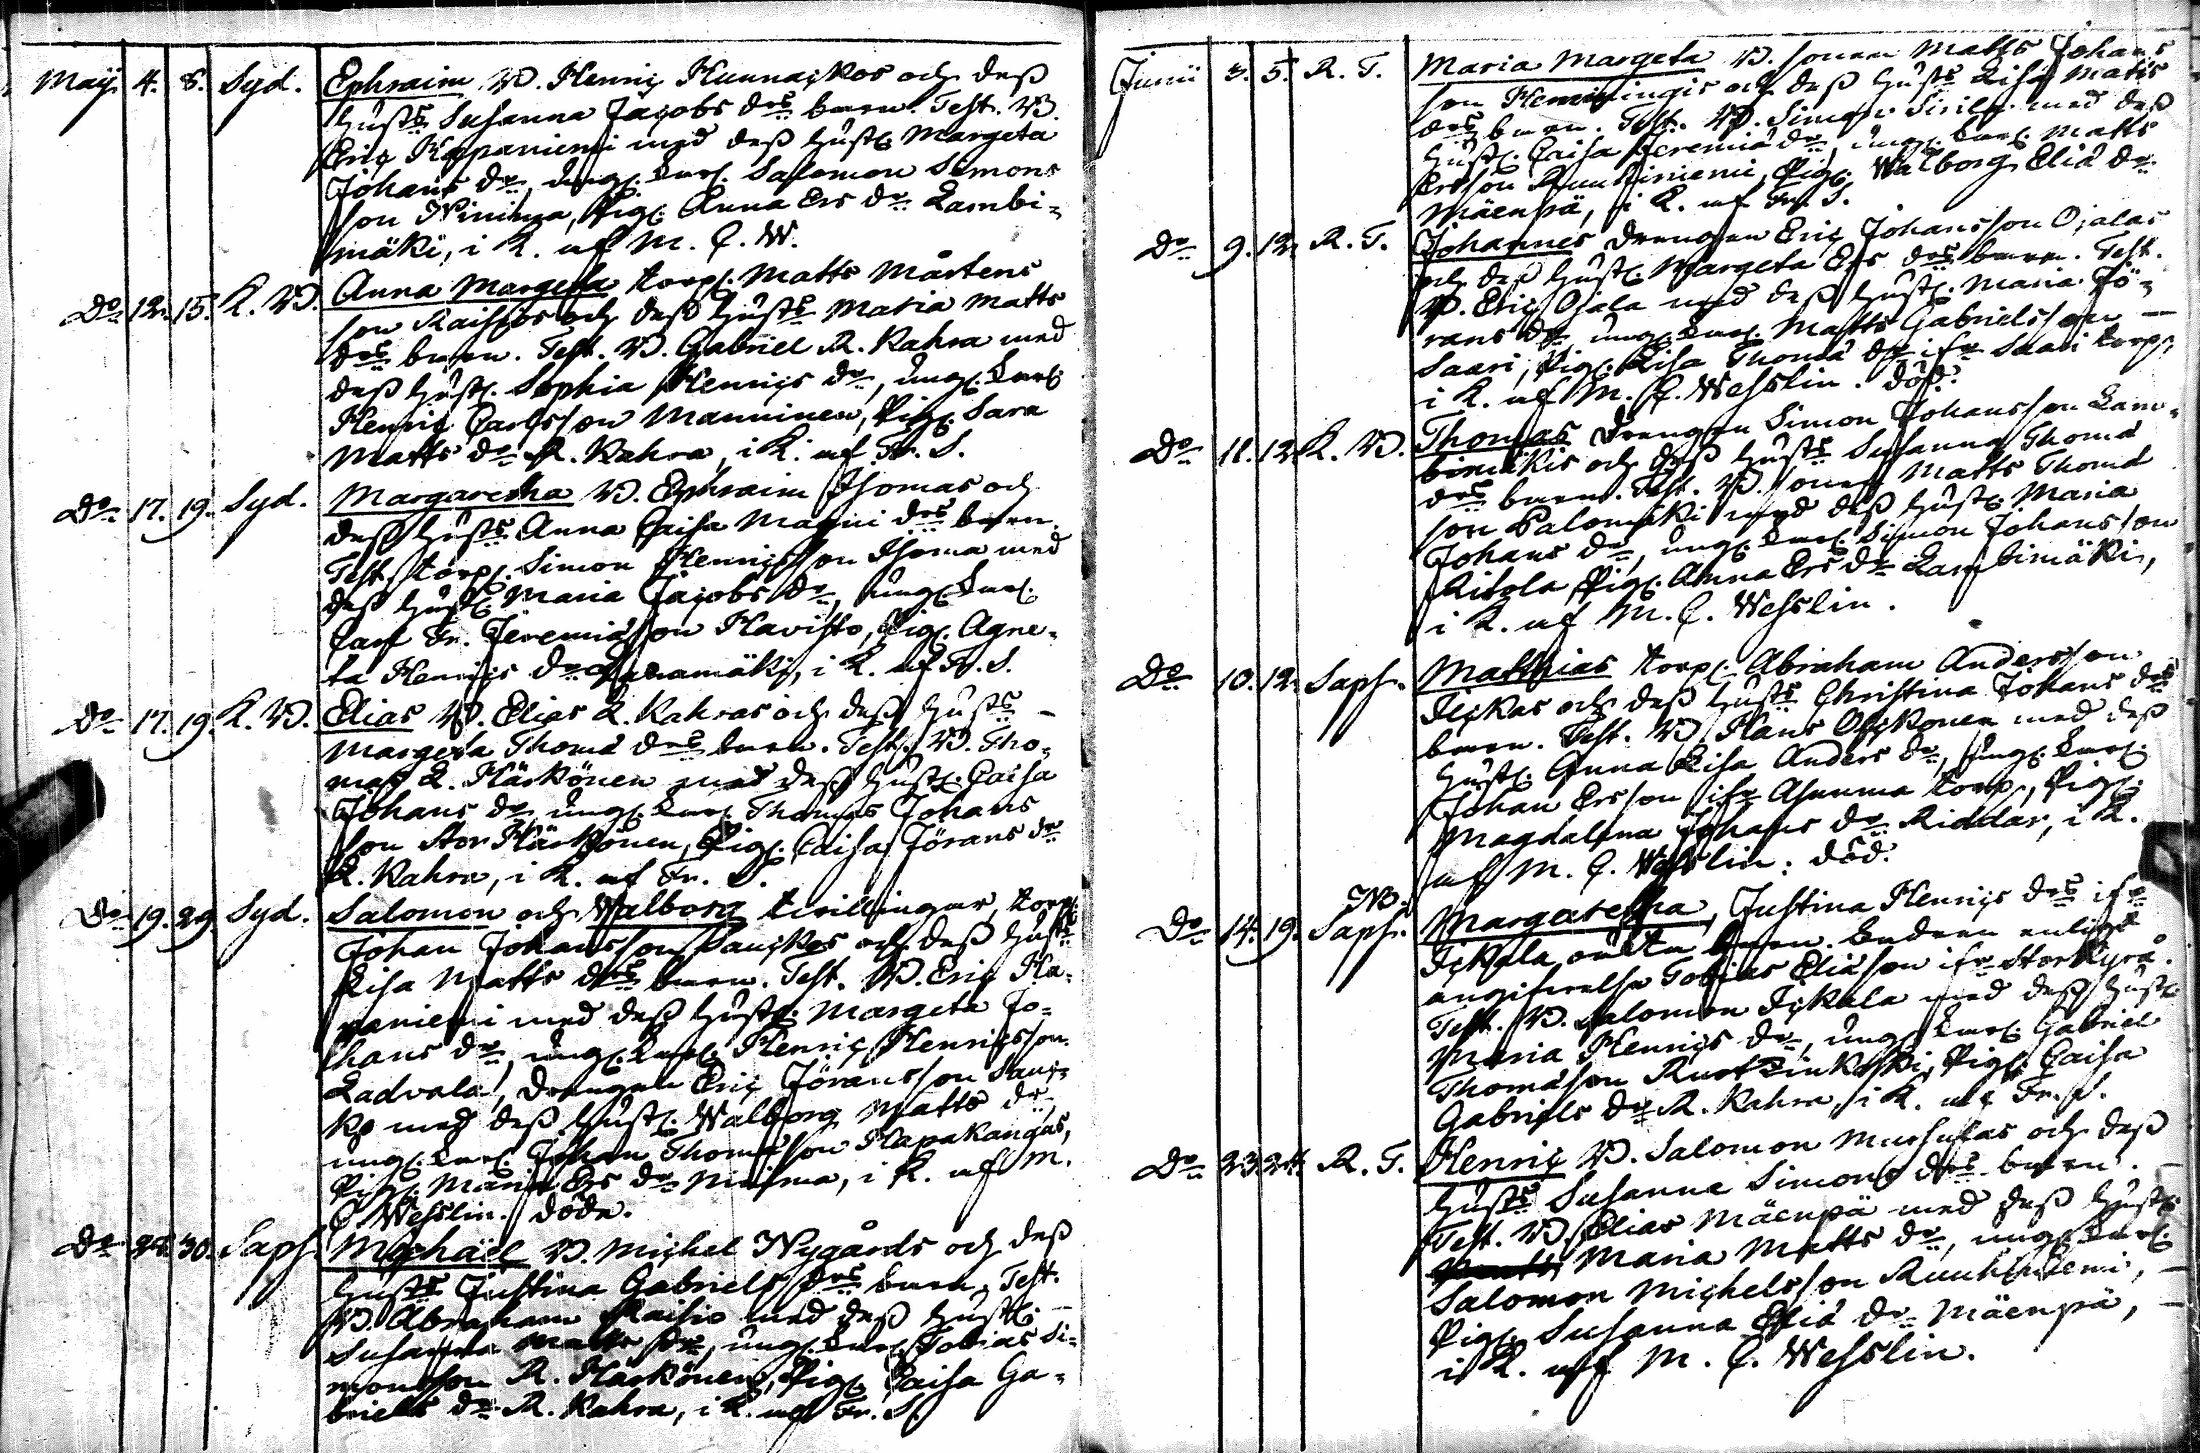 May 4. 8. Syd. Ephraim B. Henric Hunnackos och dess
hust:s Susanna Jacobs drs barn. Test. B.
Eric Kapaniemi med dess hust. Margeta
Johans dr, ung. karl. Salomon Simons
son Niinima, Pig. Anna Ers dr Lambi-
mäki, i K. af M. C. W.
Do 12. 15. K. B. Anna Margeta torp. Matts Mårtens
son Raissos och dess hust:s Maria Matts
drs barn. Test. B. Gabriel R. Kahra med
dess hust. Sophia Henrics dr, ung. karl.
Henric Carlsson Manninen, Pig. Sara
Matts dr R. Kahra, i K. af Fr. S.
Do 17. 19. Syd. Margaretha B. Ephraim Isomas och
dess hust:s Anna Caisa Magni drs barn.
Test. torp. Simon Henricsson Isoma med
dess hust. Maria Jacobs dr, ung. karl.
Carl Fr. Jeremiæson Havisto, Pig. Agne-
ta Henrics dr mäki, i K. af Fr. S.
Do 17. 19. K. B. Elias B. Elias L. Kahras och dess hust:s
Margeta Thomæ drs barn. Test. B. Tho-
mas L. Härkönen med dess hust. Caisa
Johans dr, ung. karl. Thomas Johans
son Stor Härkönen, Pig. Caisa Jörans dr
L. Kahra, i K. af Fr. S.
Do 19. 29. Syd. Salomon och Walborg tvillingar, torp.
Johan Johansson Sauckos och dess hust:s
Lisa Matts drs barn. Test. B. Eric Ka-
paniemi med dess hust. Margeta Jo-
hans dr, ung. karl. Henric Henricsson
Ladvala, Drengen Eric Jöransson Sauc-
ko med dess hust. Walborg Matts dr
ung. karl. Johan Thomæson Hapakangas,
Pig. Maria Ers dr Niinima, i K. af M.
C. Wesslin. döde.
Do 30. Saps. Michaël B. Michel Nygårds och dess
hust:s Justina Gabriels drs barn, Test.
B. Abraham Raisio med dess hust.
Susanna Matts dr, ung. karl. Tobias Si-
monsson R. Härkönen, Pig. Caisa Ga-
briels dr R. Kahra, i K. af Fr. S.
Junii 3. 5. R. T. Maria Margeta B. sonen Matts Johans
son Hemmingis och dess hust:s Lisa Matts
drs barn. Test. B. Simon Sirilä med dess
hust. Caisa Jeremiæ dr, ung. karl. Matts
Ersson Ruuhiniemi, Pig. Walborg Eliæ dr
Mäenpä, i K. af Fr. S.
Do 9. 12. R. T. Johannes Drengen Eric Johansson Ojalas
och dess hust. Margeta Ers drs barn. Test.
B. Eric Ojala med dess hust. Maria Jö-
rans dr, ung. karl. Matts Gabrielsson
Saari, Pig. Lisa Thomæ dr ifr. Saari torp,
i K. af M. C. Wesslin. död.
Do 11. 12. K. B. Thomas Drengen Simon Johansson Lam-
bimäkis och dess hust:s Susanna Thomæ
drs barn. Test. B. sonen Matts Thomæ
son Palomäki med dess hust. Maria
Johans dr, ung. karl. Simon Johansson
Ritola, Pig. Anna Ers dr Lambimäki,
i K. af M. C. Wesslin.
Do 10. 12. Saps. Matthias torp. Abraham Andersson
Ickas och dess hust:s Christina Johans drs
barn. Test. B. Hans Olckonen med dess
hust. Anna Lisa Anders dr, ung. karl.
Johan Ersson ifr. Asunma torp, Pig.
Magdalena Johans dr Riddar, i K.
af M. C. Wesslin. död.
NB.
Do 14. 19. Saps. Margaretha, Justina Henrics drs ifr
Ickala oäkta barn. Fadren enligt
angifvelse Tobias Eliæson ifr. Storkyrå.
Test. B. Salomon Ickala med dess hust.
Maria Henrics dr, ung. karl. Gabriel
Thomæson Ruotzinkoski, Pig. Caisa
Gabriels dr R. Kahra, i K. af Fr. S.
Do 23. 24. R. T. Henric B. Salomon Mursulas och dess
hust:s Susanna Simons drs barn.
Test. B. Elias Mäenpä med dess hust.
Maria Matts dr, ung. karl.
Salomon Michelsson Ruuhiniemi,
Pig. Susanna Eliæ dr Mäenpä,
i K. af M. C. Wesslin.